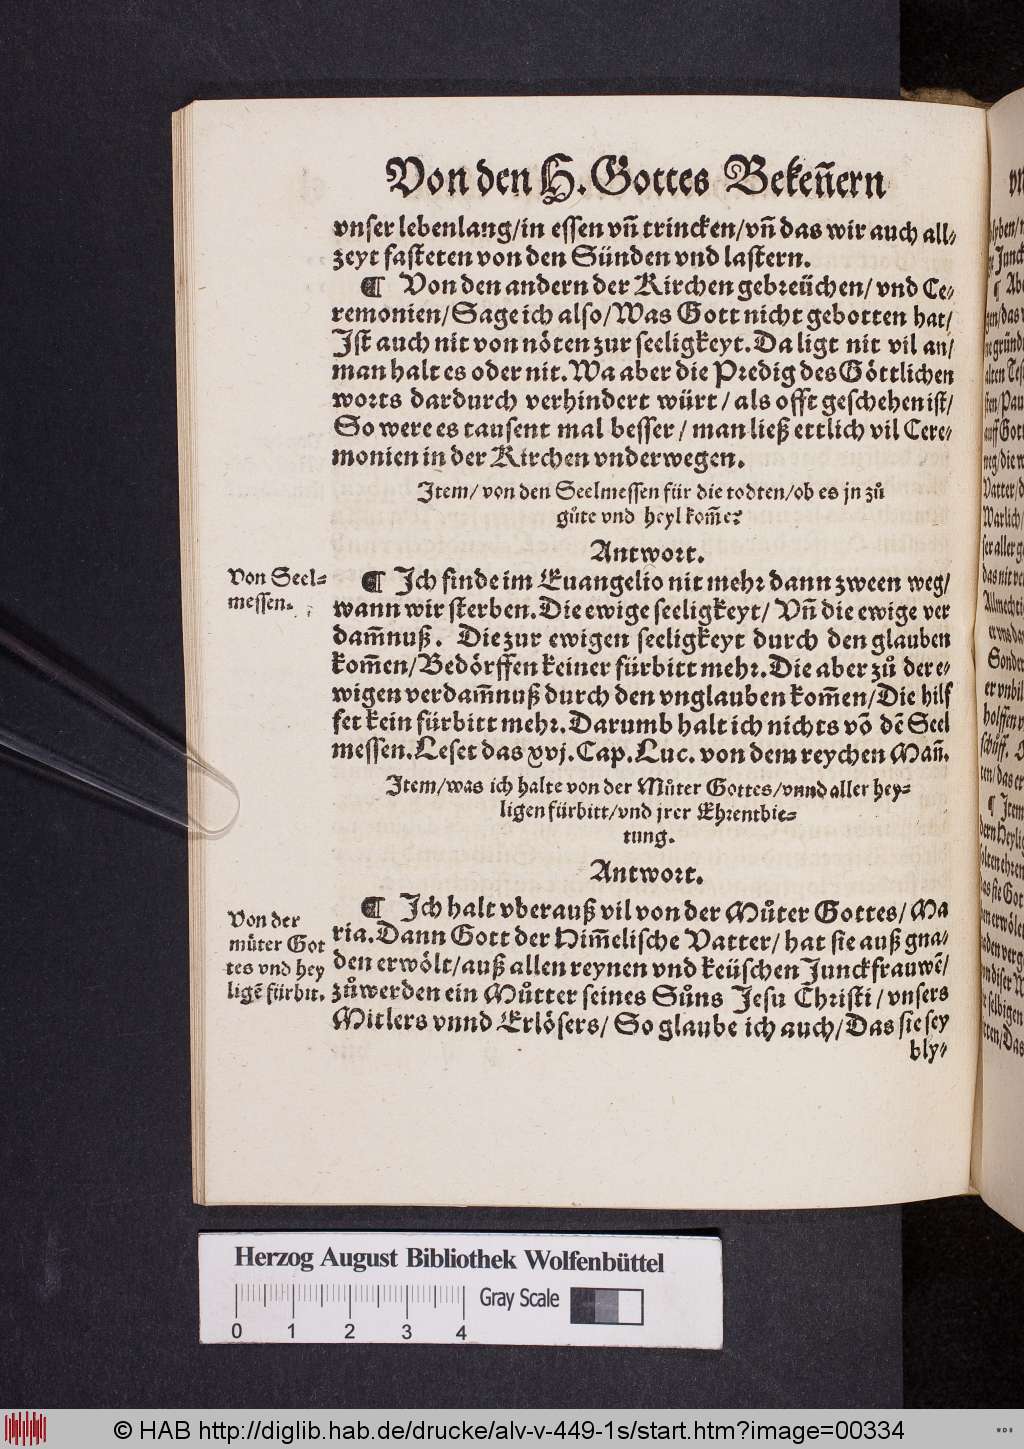 Von den H. Gottes Bekeñern
vnser lebenlang/in essen vñ trincken/vñ das wir auch all⸗
zeyt fasteten von den Sünden vnd lastern.
¶ Von den andern der Kirchen gebreüchen/ vnd Ce⸗
remonien/Sage ich also/Was Gott nicht gebotten hat/
Ist auch nit von nöten zur seeligkeyt.Da ligt nit vil an/
man halt es oder nit.Wa aber die Predig des Göttlichen
worts dardurch verhindert würt/als offt geschehen ist/
So were es tausent mal besser/man ließ ettlich vil Cere⸗
monien in der Kirchen vnderwegen.
Item/von den Seelmessen für die todten/ob es jn zů
gůte vnd heyl kom̃e?
Antwort.
Von Seel⸗
messen.
¶ Ich finde im Euangelio nit mehr dann zween weg/
wann wir sterben.Die ewige seeligkeyt/ Vñ die ewige ver
dam̃nuß. Die zur ewigen seeligkeyt durch den glauben
kom̃en/Bedörffen keiner fürbitt mehr.Die aber zů der e⸗
wigen verdam̃nuß durch den vnglauben kom̃en/Die hilf
fet kein fürbitt mehr.Darumb halt ich nichts võ dẽ Seel
messen.Leset das xvj.Cap.Luc. von dem reychen Mañ.
Item/was ich halte von der Můter Gottes/vnnd aller hey⸗
ligen fürbitt/vnd jrer Ehrentbie⸗
tung.
Antwort.
Von der
můter Got
tes vnd hey
ligẽ fürbit.
¶ Ich halt vberauß vil von der Můter Gottes/ Ma
ria.Dann Gott der Him̃elische Vatter/ hat sie auß gna⸗
den erwölt/auß allen reynen vnd keüschen Junckfrauwẽ/
zůwerden ein Můtter seines Sůns Jesu Christi/vnsers
Mitlers vnnd Erlösers/ So glaube ich auch/Das sie sey
bly⸗
Herzog August Bibliothek Wolfenbüttel
Gray Scale
0 1 2 3 4
© HAB http://diglib.hab.de/drucke/alv-v-449-1s/start.htm?image=00334